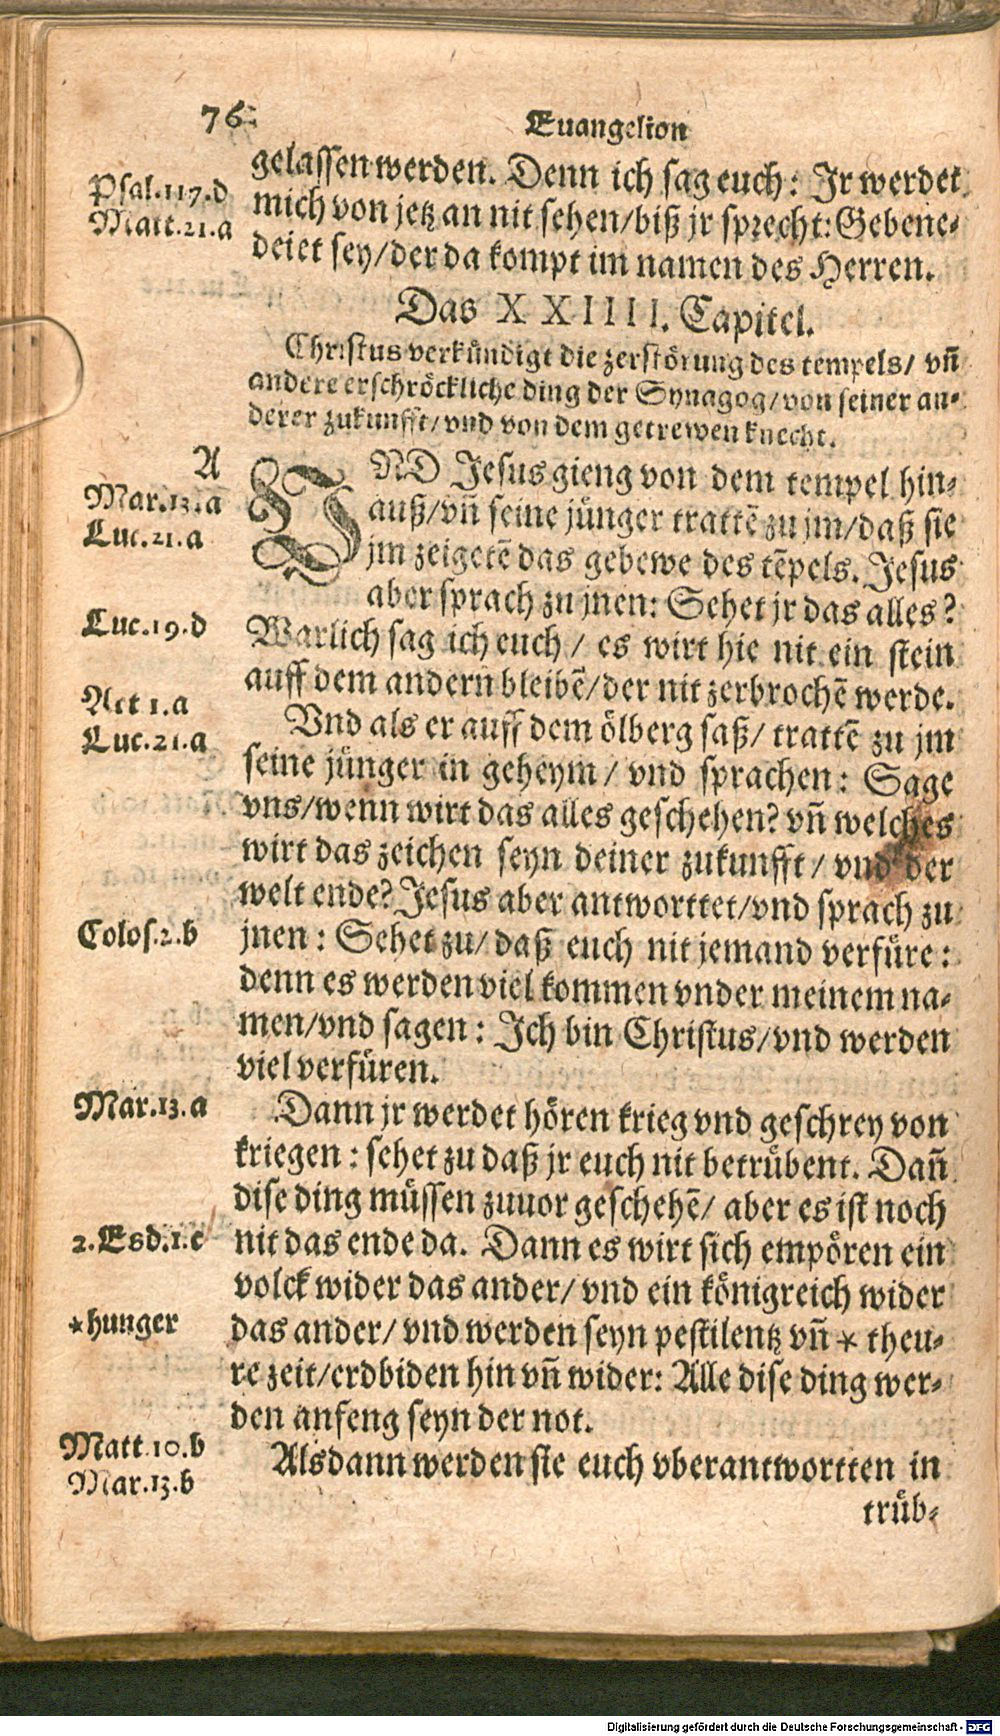 76
Euangelion
gelassen werden. Denn ich sag euch: Jr werdet
Psal.117.d
mich von jetz an nit sehen/biß jr sprecht: Gebene-
Matt.21.a
deiet sey/der da kompt im namen des Herren.
Das XXIIII. Capitel.
Christus verkündigt die zerstörung des tempels/ vñ
andere erschröckliche ding der Synagog/von seiner an-
derer zukunfft/vnd von dem getrewen knecht.
A
VND Jesus gieng von dem tempel hin-
Mar.13.a
auß/vñ seine jünger trattē zu jm/daß sie
Luc.21.a
jm zeigetē das gebewe des tēpels. Jesus
aber sprach zu jnen: Sehet jr das alles?
Luc.19.d
Warlich sag ich euch/ es wirt hie nit ein stein
auff dem andern bleibē/der nit zerbrochē werde.
Act 1.a
Vnd als er auff dem ölberg saß/ trattē zu jm
Luc.21.a
seine jünger in geheym/ vnd sprachen: Sage
vns/wenn wirt das alles geschehen? vñ welches
wirt das zeichen seyn deiner zukunfft/ vnd der
welt ende? Jesus aber antworttet/vnd sprach zu
Colos.2.b
jnen: Sehet zu/ daß euch nit jemand verfüre:
denn es werden viel kommen vnder meinem na-
men/vnd sagen: Ich bin Christus/vnd werden
viel verfüren.
Mar.13.a
Dann jr werdet hören krieg vnd geschrey von
kriegen: sehet zu daß jr euch nit betrübent. Dañ
dise ding müssen zuuor geschehē/ aber es ist noch
2.Esd.1.c
nit das ende da. Dann es wirt sich empören ein
volck wider das ander/ vnd ein königreich wider
*hunger
das ander/ vnd werden seyn pestilentz vñ * theu-
re zeit/erdbiden hin vñ wider: Alle dise ding wer-
den anfeng seyn der not.
Matt.10.b
Alsdann werden sie euch vberantwortten in
Mar.13.b
trüb-
Digitalisierung gefördert durch die Deutsche Forschungsgemeinschaft - DFG